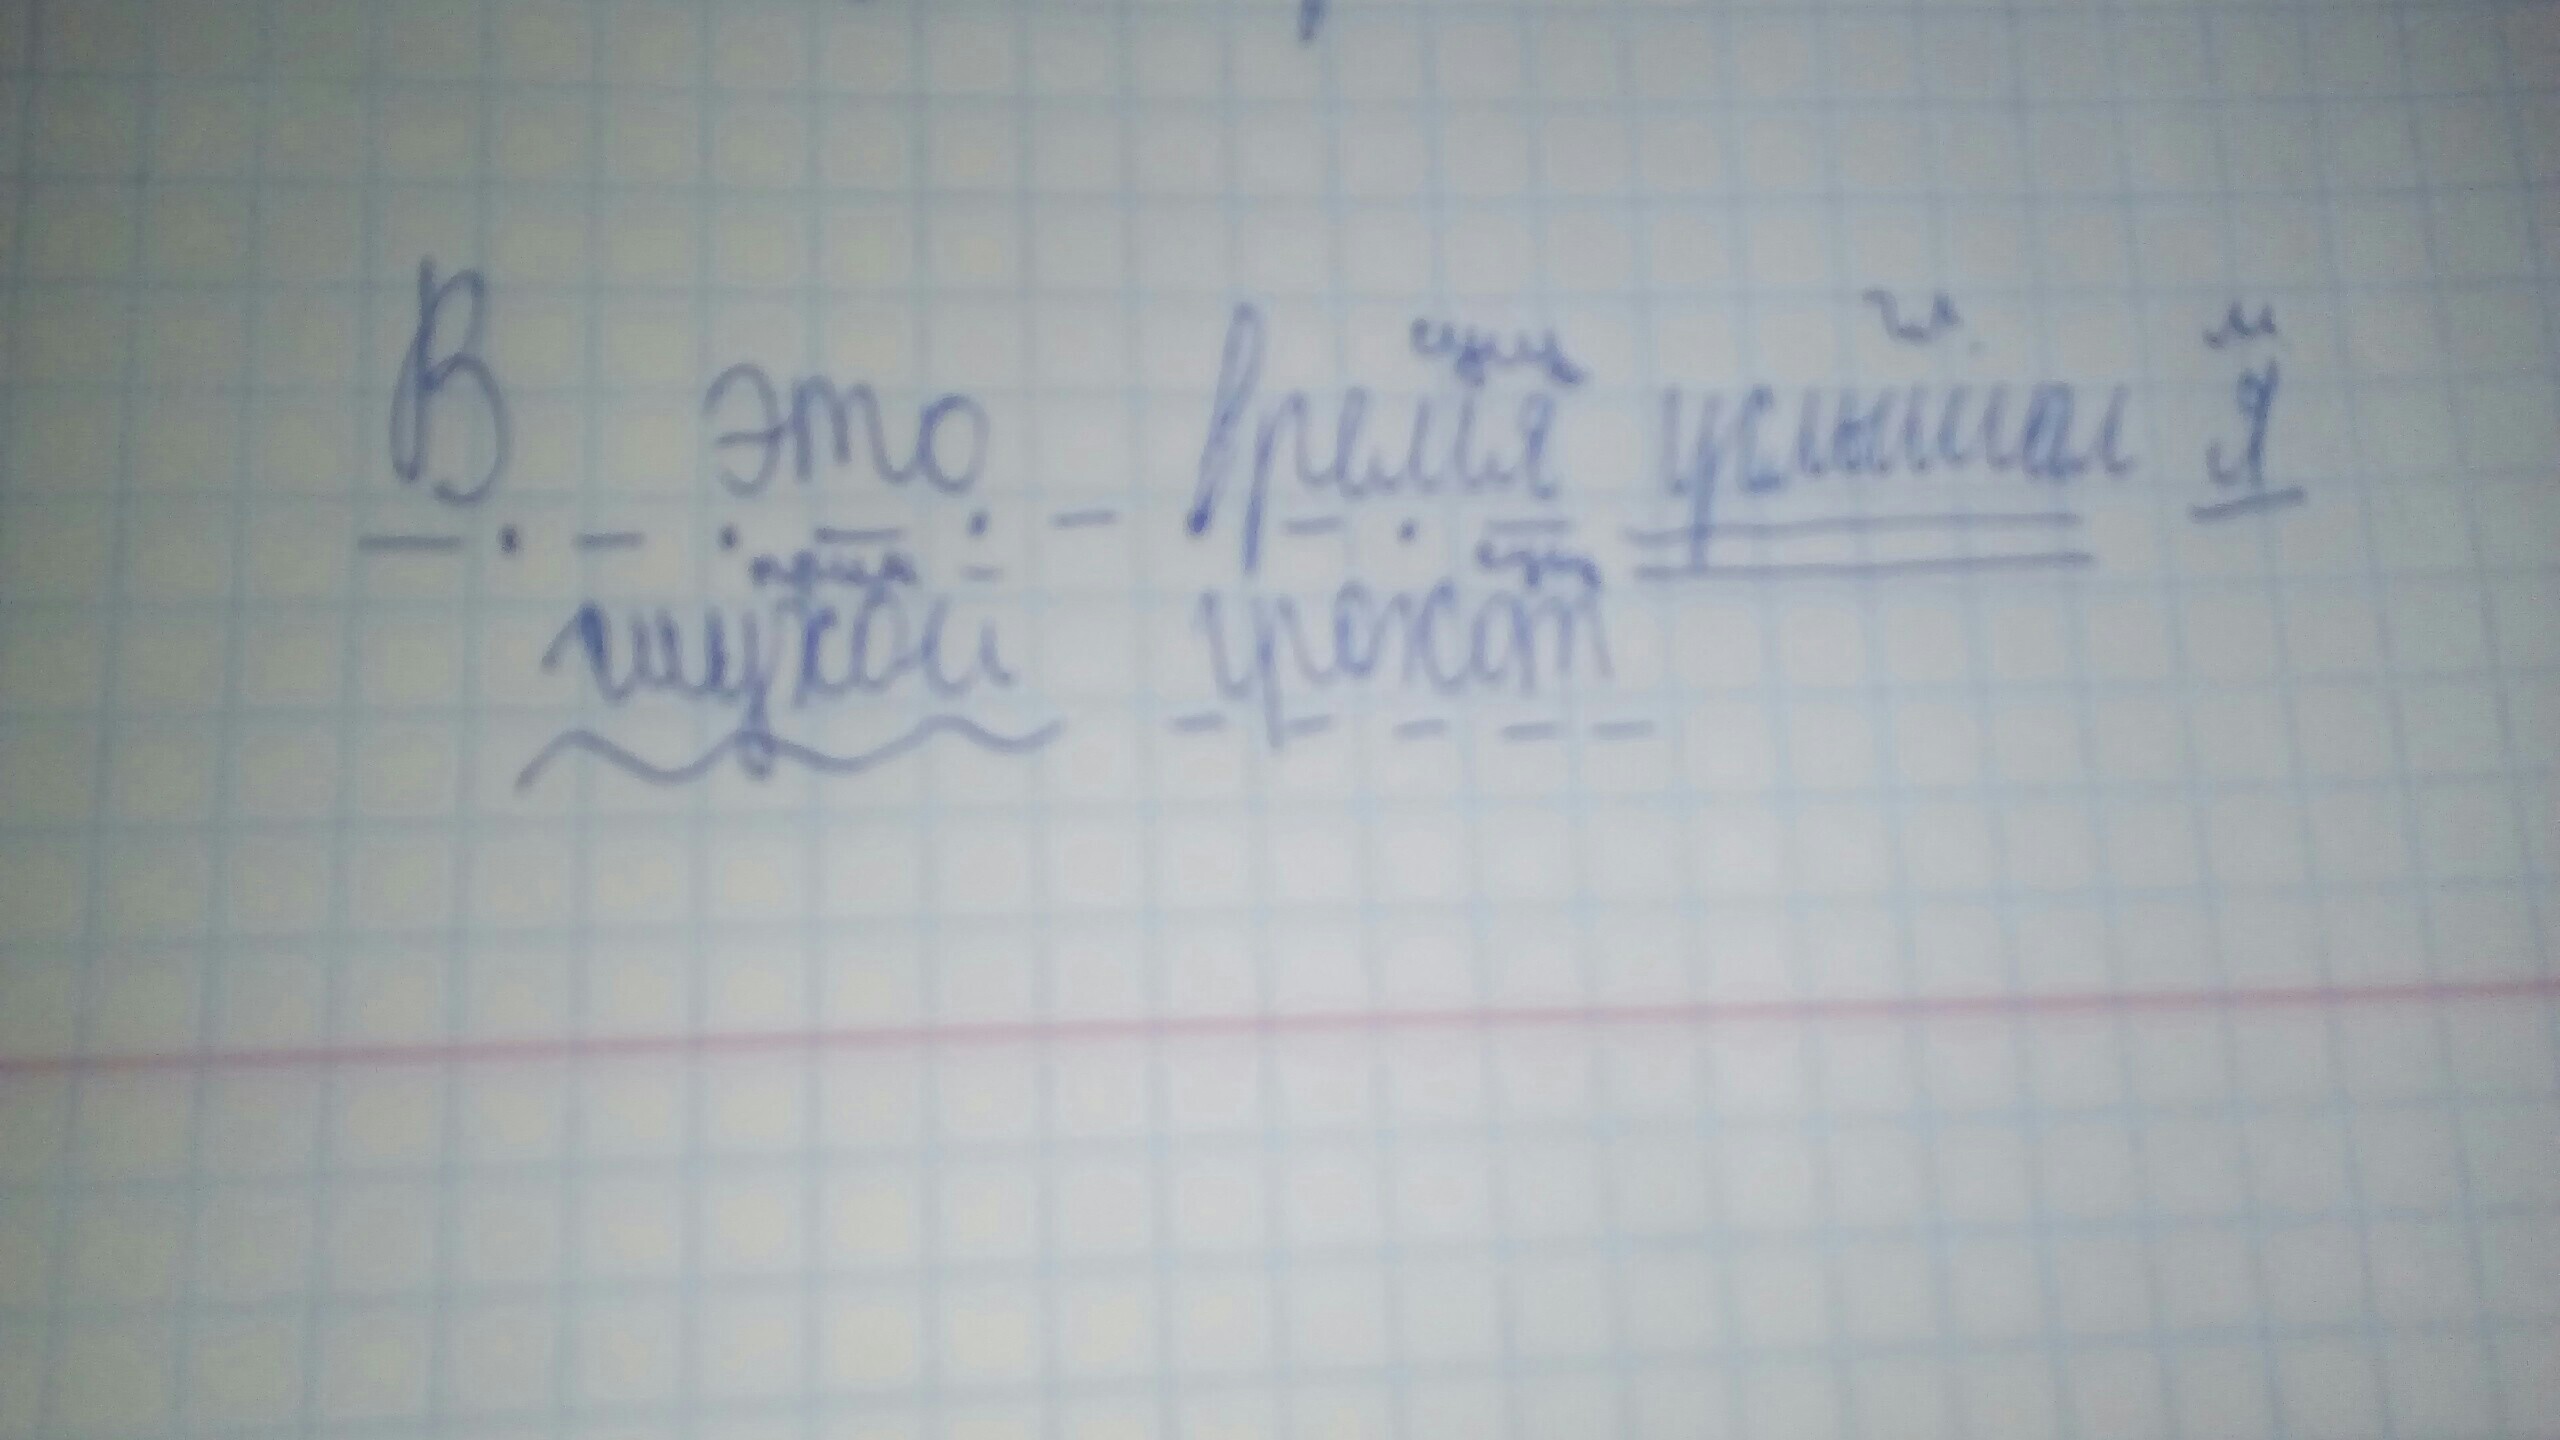 сущ гл. м
В это время услышал я
прил сущ
глухой грохот